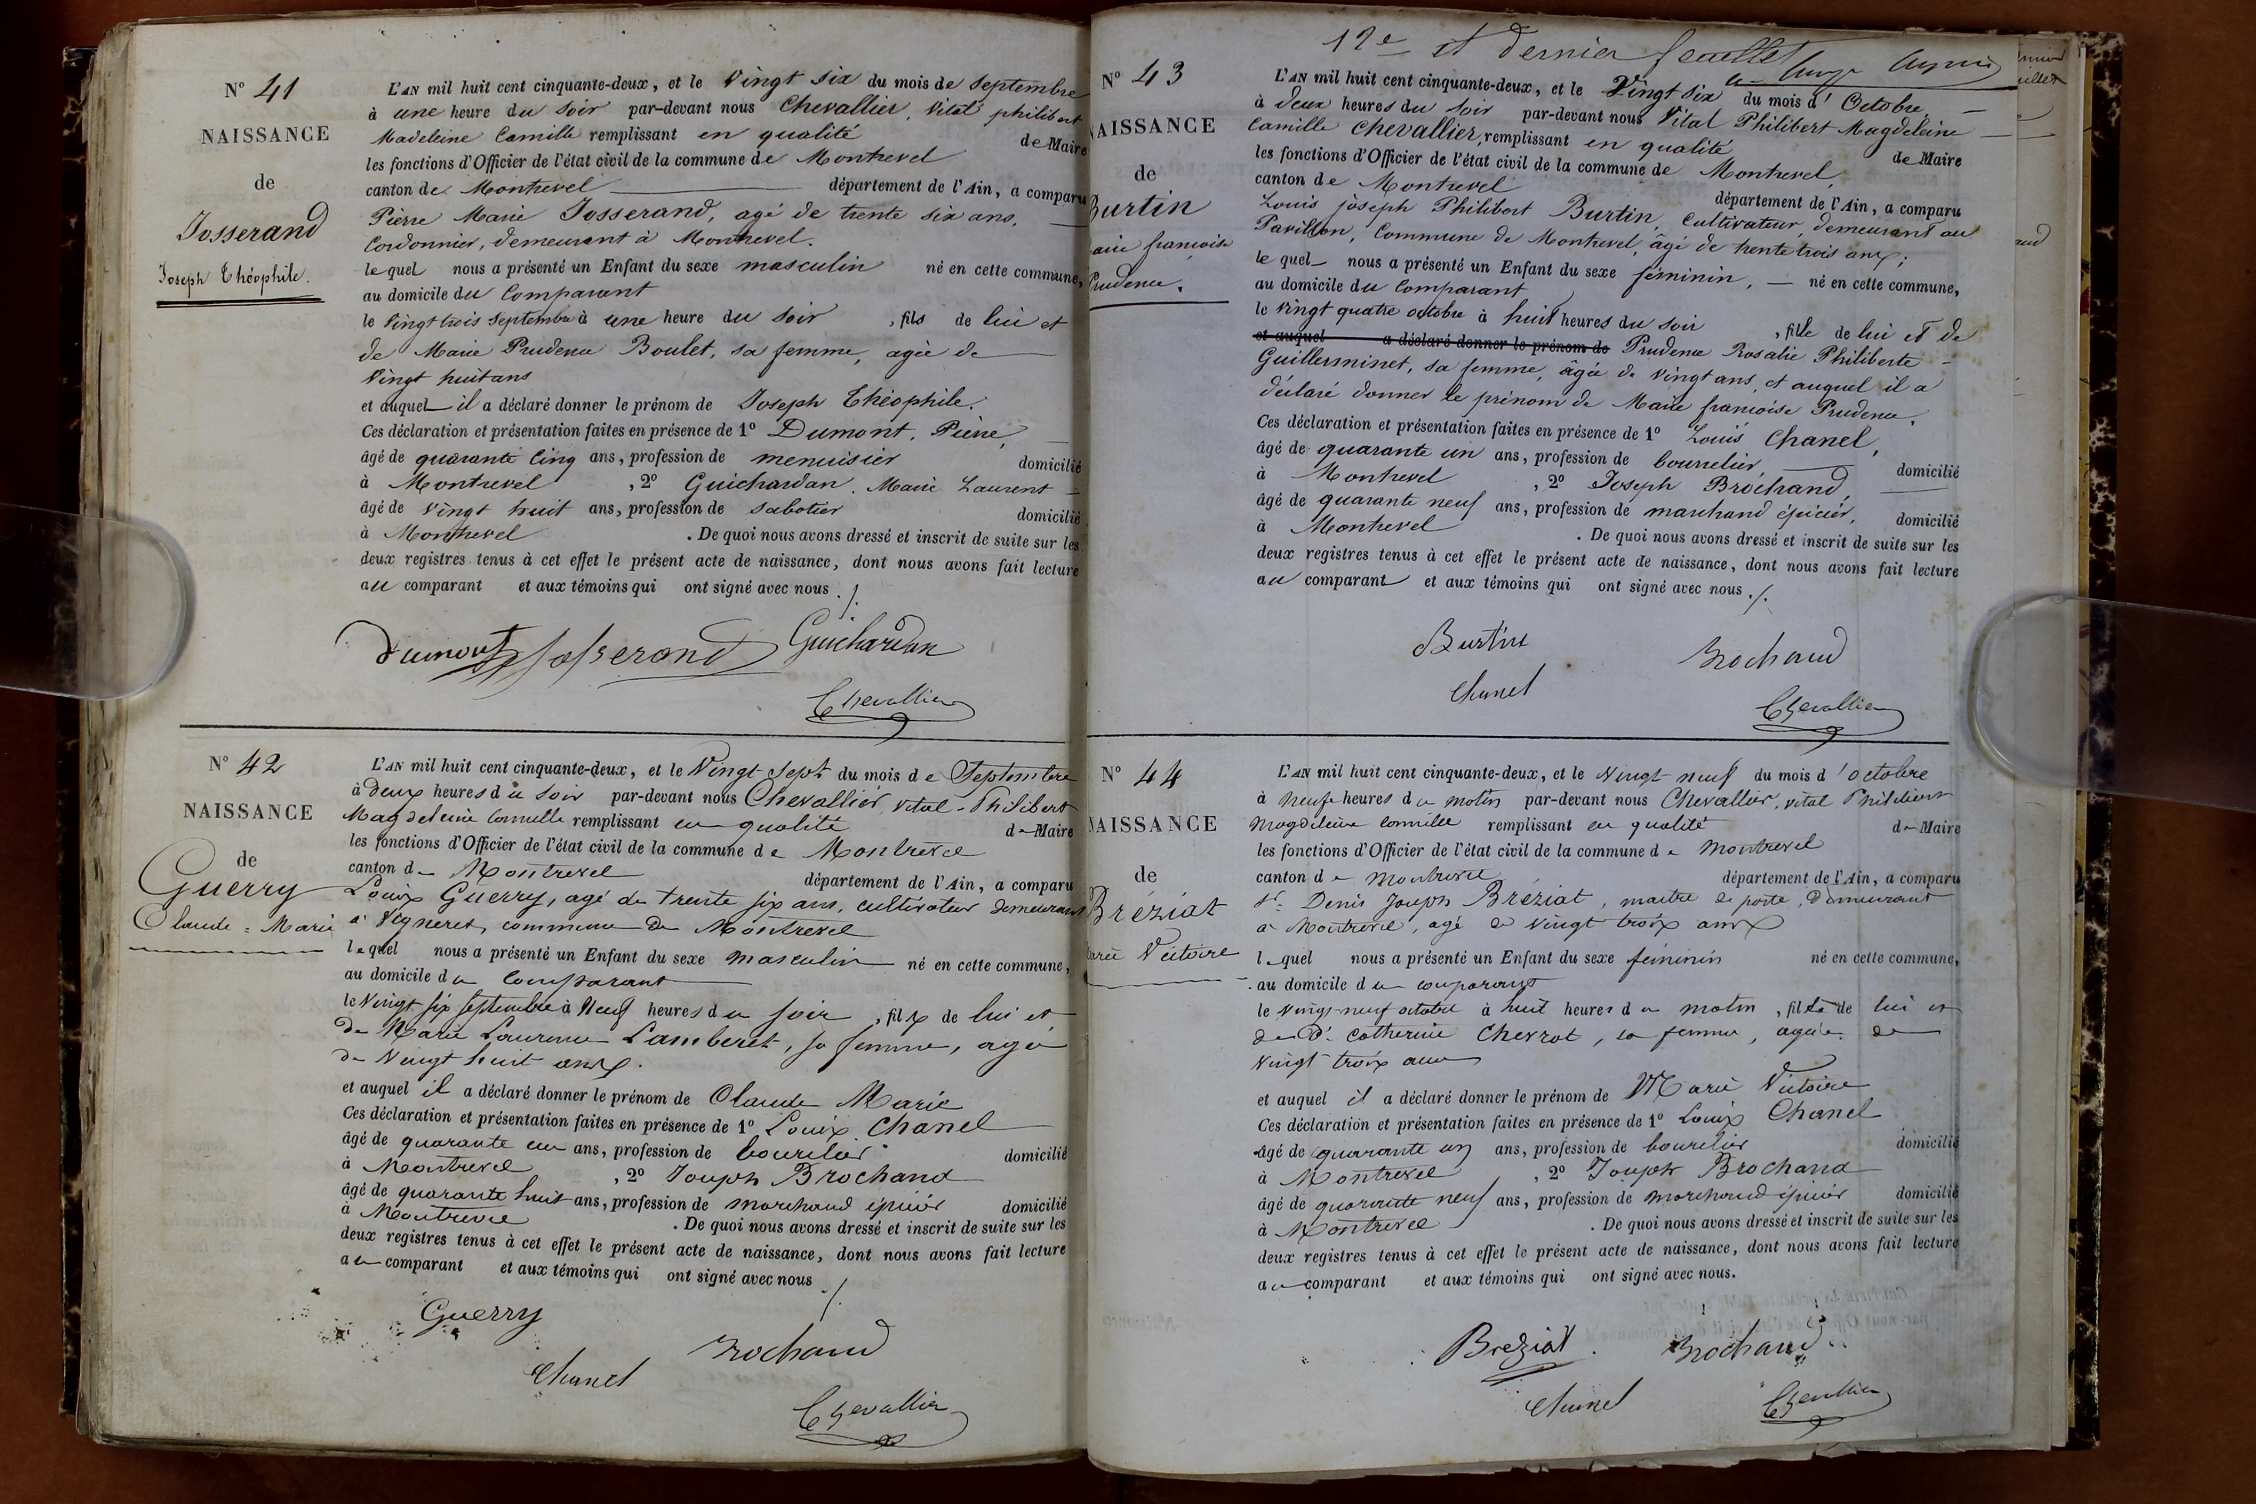 N° 41
NAISSANCE
de
Josserand
Joseph Théophile.
L'AN mil huit cent cinquante-deux, et le Vingt six du mois de Septembre
à une heure du soir par-devant nous Chevallier, Vital philibert
Madeleine Camille remplissant en qualité de Maire
les fonctions d'Officier de l'état civil de la commune de Montrevel
canton de Montrevel département de l'Ain, a comparu
Pierre Marie Josserand, agé de trente six ans,
Cordonnier, demeurant à Montrevel.
lequel nous a présenté un Enfant du sexe masculin né en cette commune,
au domicile du Comparant
le Vingt trois Septembre à une heure du soir, fils de lui et
de Marie Prudence Boulet, sa femme, agée de
Vingt huit ans
et auquel il a déclaré donner le prénom de Joseph Théophile.
Ces déclaration et présentation faites en présence de 1° Dumont, Pierre,
âgé de quarante Cinq ans, profession de menuisier domicilié
à Montrevel, 2° Guichardan, Marie Laurent
âgé de Vingt huit ans, profession de sabotier domicilié
à Montrevel. De quoi nous avons dressé et inscrit de suite sur les
deux registres tenus à cet effet le présent acte de naissance, dont nous avons fait lecture
au comparant et aux témoins qui ont signé avec nous ./.
Dumont Josserand Guichardan
Chevallier
N° 42
NAISSANCE
de
Guerry
Claude = Marie
L'AN mil huit cent cinquante-deux, et le Vingt Sept du mois de Septembre
à deux heures du Soir par-devant nous Chevallier, vital - Philibert
Magdeleine Camille remplissant en qualité de Maire
les fonctions d'Officier de l'état civil de la commune de Montrevel
canton de Montrevel département de l'Ain, a comparu
Louis Guerry, agé de trente six ans, cultivateur demeurant
à Vigneret, commune de Montrevel
lequel nous a présenté un Enfant du sexe masculin né en cette commune,
au domicile du comparant
le Vingt six Septembre à Neuf heures du soir, fils de lui et
de Marie Laurence Lamberet, sa femme, agée
de Vingt huit ans.
et auquel il a déclaré donner le prénom de Claude Marie
Ces déclaration et présentation faites en présence de 1° Louis Chanel
âgé de quarante un ans, profession de bourelier domicilié
à Montrevel, 2° Joseph Brochand
âgé de quarante huit ans, profession de marchand épicier domicilié
à Montrevel. De quoi nous avons dressé et inscrit de suite sur les
deux registres tenus à cet effet le présent acte de naissance, dont nous avons fait lecture
au comparant et aux témoins qui ont signé avec nous ./.
Guerry
Brochand
Chanel
Chevallier
12e et dernier feuillet
N° 43
NAISSANCE
de
Burtin
Marie françoise
Prudence.
L'AN mil huit cent cinquante-deux, et le Vingt six du mois d'Octobre
à deux heures du soir par-devant nous Vital Philibert Magdeleine
Camille Chevallier, remplissant en qualité de Maire
les fonctions d'Officier de l'état civil de la commune de Montrevel,
canton de Montrevel département de l'Ain, a comparu
Louis joseph Philibert Burtin, Cultivateur, demeurant au
Pavillon, Commune de Montrevel, âgé de trente trois ans;
lequel nous a présenté un Enfant du sexe féminin, né en cette commune,
au domicile du Comparant
le vingt quatre octobre à huit heures du soir, fille de lui et de
et auquel a déclaré donner le prénom de Prudence Rosalie Philiberte
Guillerminet, sa femme, âgée de vingt ans, et auquel il a
déclaré donner le prénom de Marie françoise Prudence.
Ces déclaration et présentation faites en présence de 1° Louis Chanel,
âgé de quarante un ans, profession de bourrelier, domicilié
à Montrevel, 2° Joseph Brochand,
âgé de quarante neuf ans, profession de marchand épicier, domicilié
à Montrevel. De quoi nous avons dressé et inscrit de suite sur les
deux registres tenus à cet effet le présent acte de naissance, dont nous avons fait lecture
au comparant et aux témoins qui ont signé avec nous ./.
Burtin
Brochand
Chanel
Chevallier
N° 44
NAISSANCE
de
Bréziat
Marie Victoire
L'AN mil huit cent cinquante-deux, et le Vingt neuf du mois d'octobre
à neuf heures du matin par-devant nous Chevallier, vital Philibert
Magdeleine Camille remplissant en qualité de Maire
les fonctions d'Officier de l'état civil de la commune de Montrevel
canton de Montrevel département de l'Ain, a comparu
sr. Denis Joseph Bréziat, maitre de poste, demeurant
à Montrevel, agé de vingt trois ans
lequel nous a présenté un Enfant du sexe féminin né en cette commune,
au domicile du comparant
le Vingt-neuf octobre à huit heures du matin, fille de lui et
de De. Catherine Chevrot, sa femme, agée de
vingt trois ans
et auquel il a déclaré donner le prénom de Marie Victoire
Ces déclaration et présentation faites en présence de 1° Louis Chanel
âgé de quarante un ans, profession de bourelier domicilié
à Montrevel, 2° Joseph Brochand
âgé de quarante neuf ans, profession de marchand épicier domicilié
à Montrevel. De quoi nous avons dressé et inscrit de suite sur les
deux registres tenus à cet effet le présent acte de naissance, dont nous avons fait lecture
au comparant et aux témoins qui ont signé avec nous.
Breziat
Brochand
Chanel
Chevallier